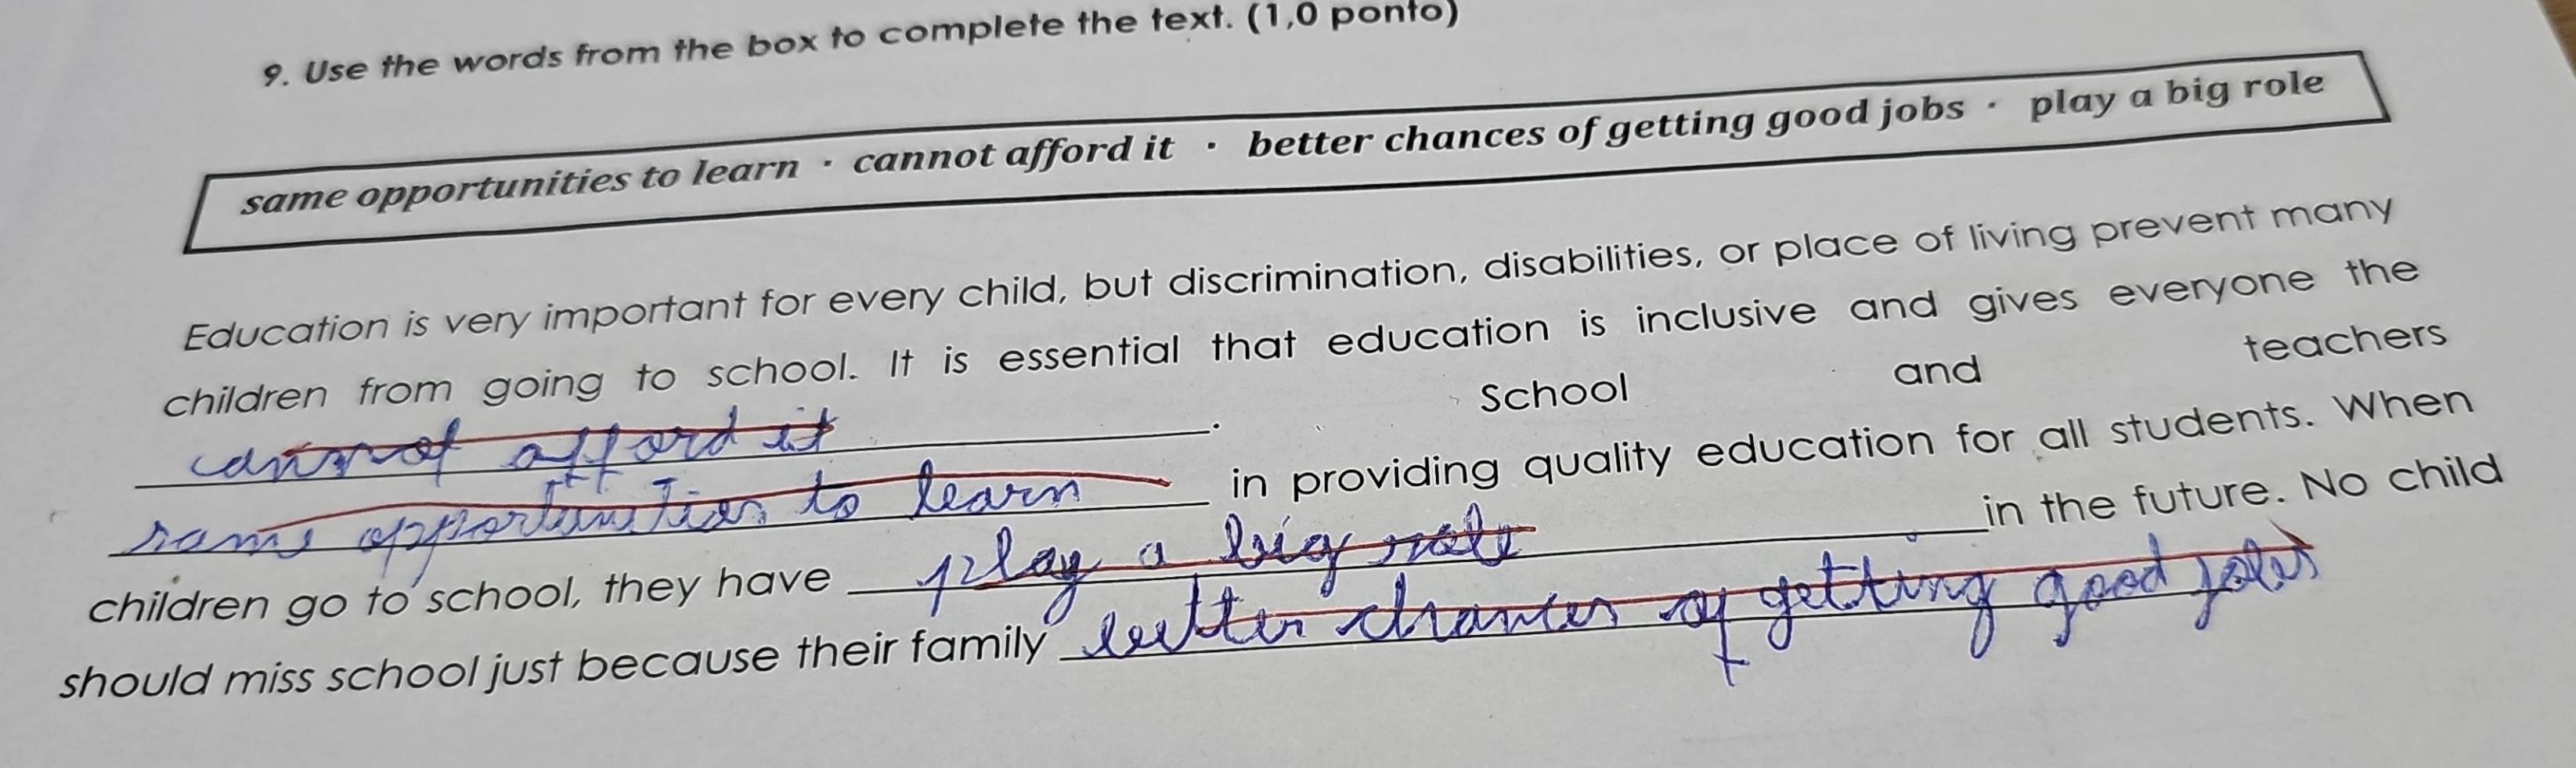 9. Use the words from the box to complete the text. (1,0 ponto)
same opportunities to learn · cannot afford it · better chances of getting good jobs · play a big role
Education is very important for every child, but discrimination, disabilities, or place of living prevent many
children from going to school. It is essential that education is inclusive and gives everyone the
cannot afford it. School and teachers
same opportunities to learn in providing quality education for all students. When
children go to school, they have play a big role in the future. No child
should miss school just because their family better chances of getting good jobs